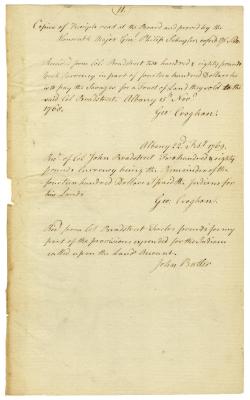 H.
Copies of Receipts read at the Board and proved by the
Honorable Major Genl. Philip Schuyler
Received from Col: Bradstreet two hundred & eighty pounds
York Currency in part of fourteen hundred Dollars he
will pay the Savages for a Tract of Land they sold to the
said Col: Bradstreet. Albany 15th Novr.
1768.
Geo: Croghan.
Albany 22d. Feby. 1769.
Recd. of Col: John Bradstreet Two hundred & eighty
pounds Currency being the Remainder of the
fourteen hundred Dollars I paid the Indians for
his Lands
Geo: Croghan.
Recd. from Col: Bradstreet Twelve pounds for my
part of the provisions expended for the Indians
called upon the Land Account.
John Butler